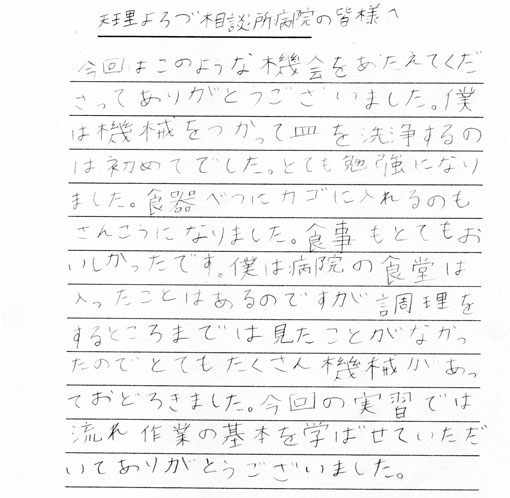 天理よろづ相談所病院の皆様へ
今回はこのような機会をあたえてくだ
さってありがとうございました。僕
は機械をつかって皿を洗浄するの
は初めてでした。とても勉強になり
ました。食器べつにカゴに入れるのも
さんこうになりました。食事もとてもお
いしかったです。僕は病院の食堂は
入ったことはあるのですが調理を
するところまでは見たことがなかっ
たのでとてもたくさん機械があっ
ておどろきました。今回の実習では
流れ作業の基本を学ばせていただ
いてありがとうございました。